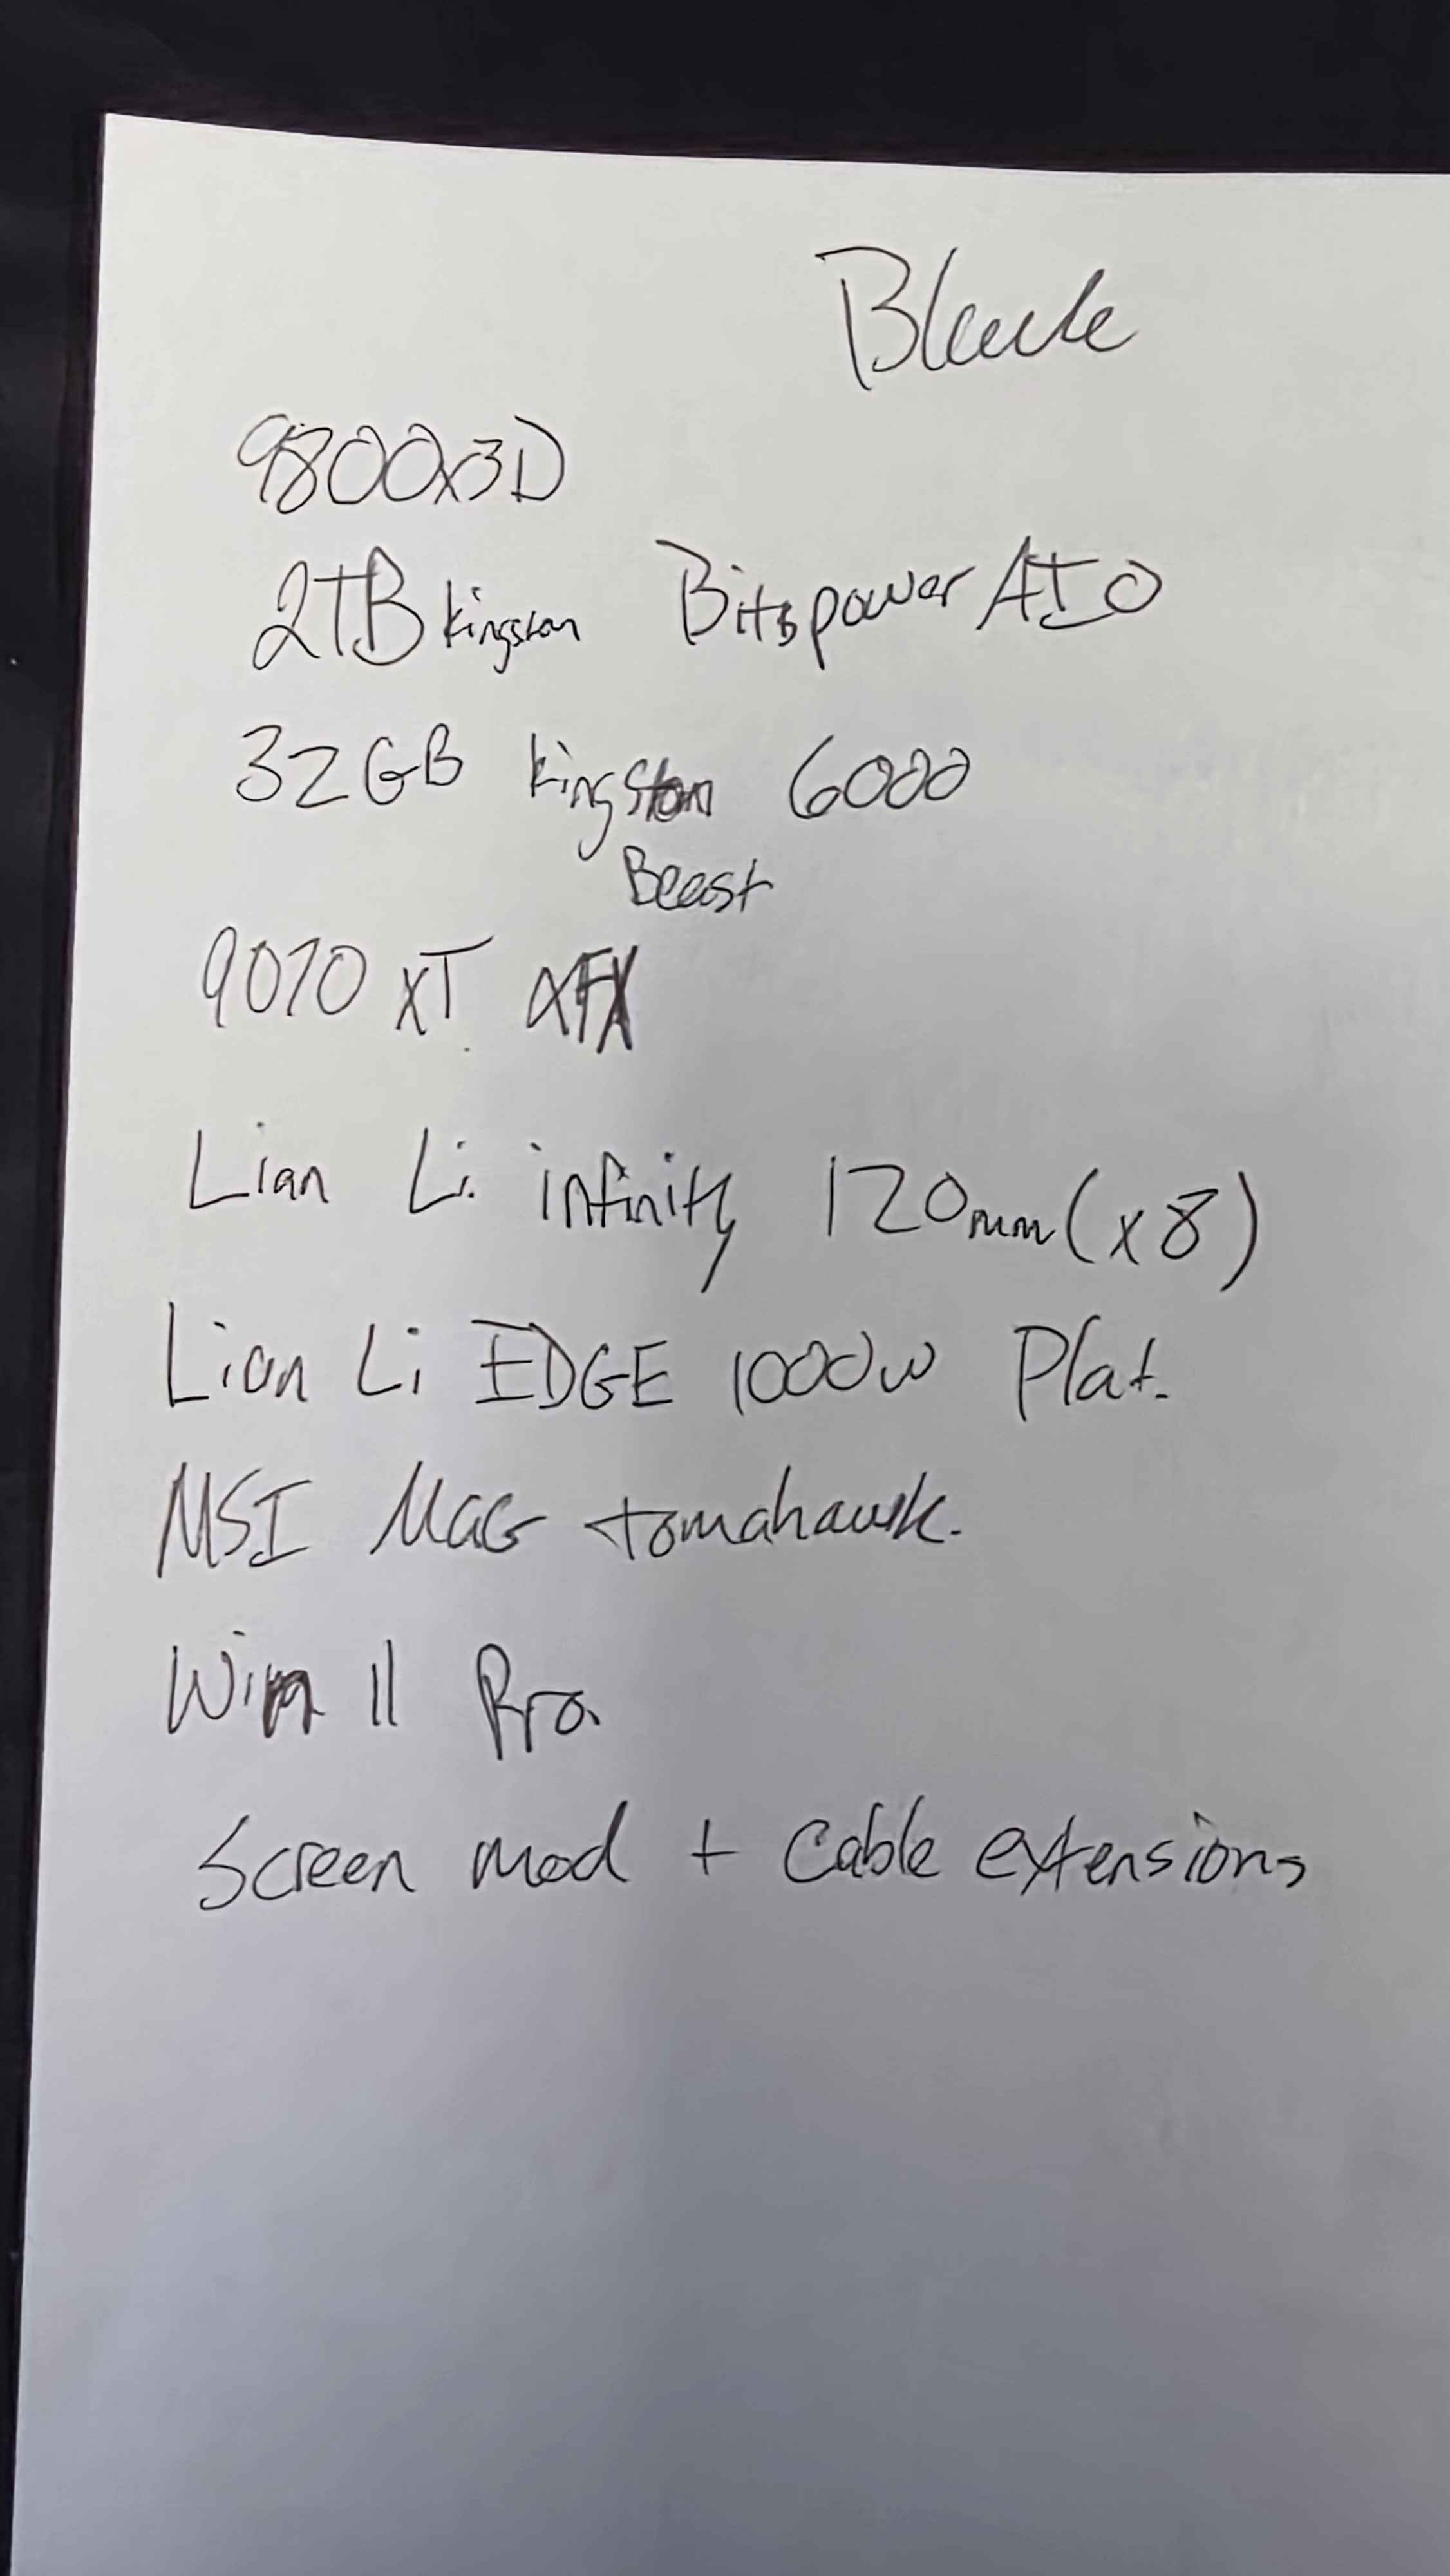 Black
9800x3D
2TB kingston Bitspower AIO
32GB kingston 6000
Beast
9070 XT XFX
Lian Li infinity 120mm (x8)
Lian Li EDGE 1000W Plat.
MSI MAG tomahawk.
Win 11 Pro.
Screen mod + Cable extensions